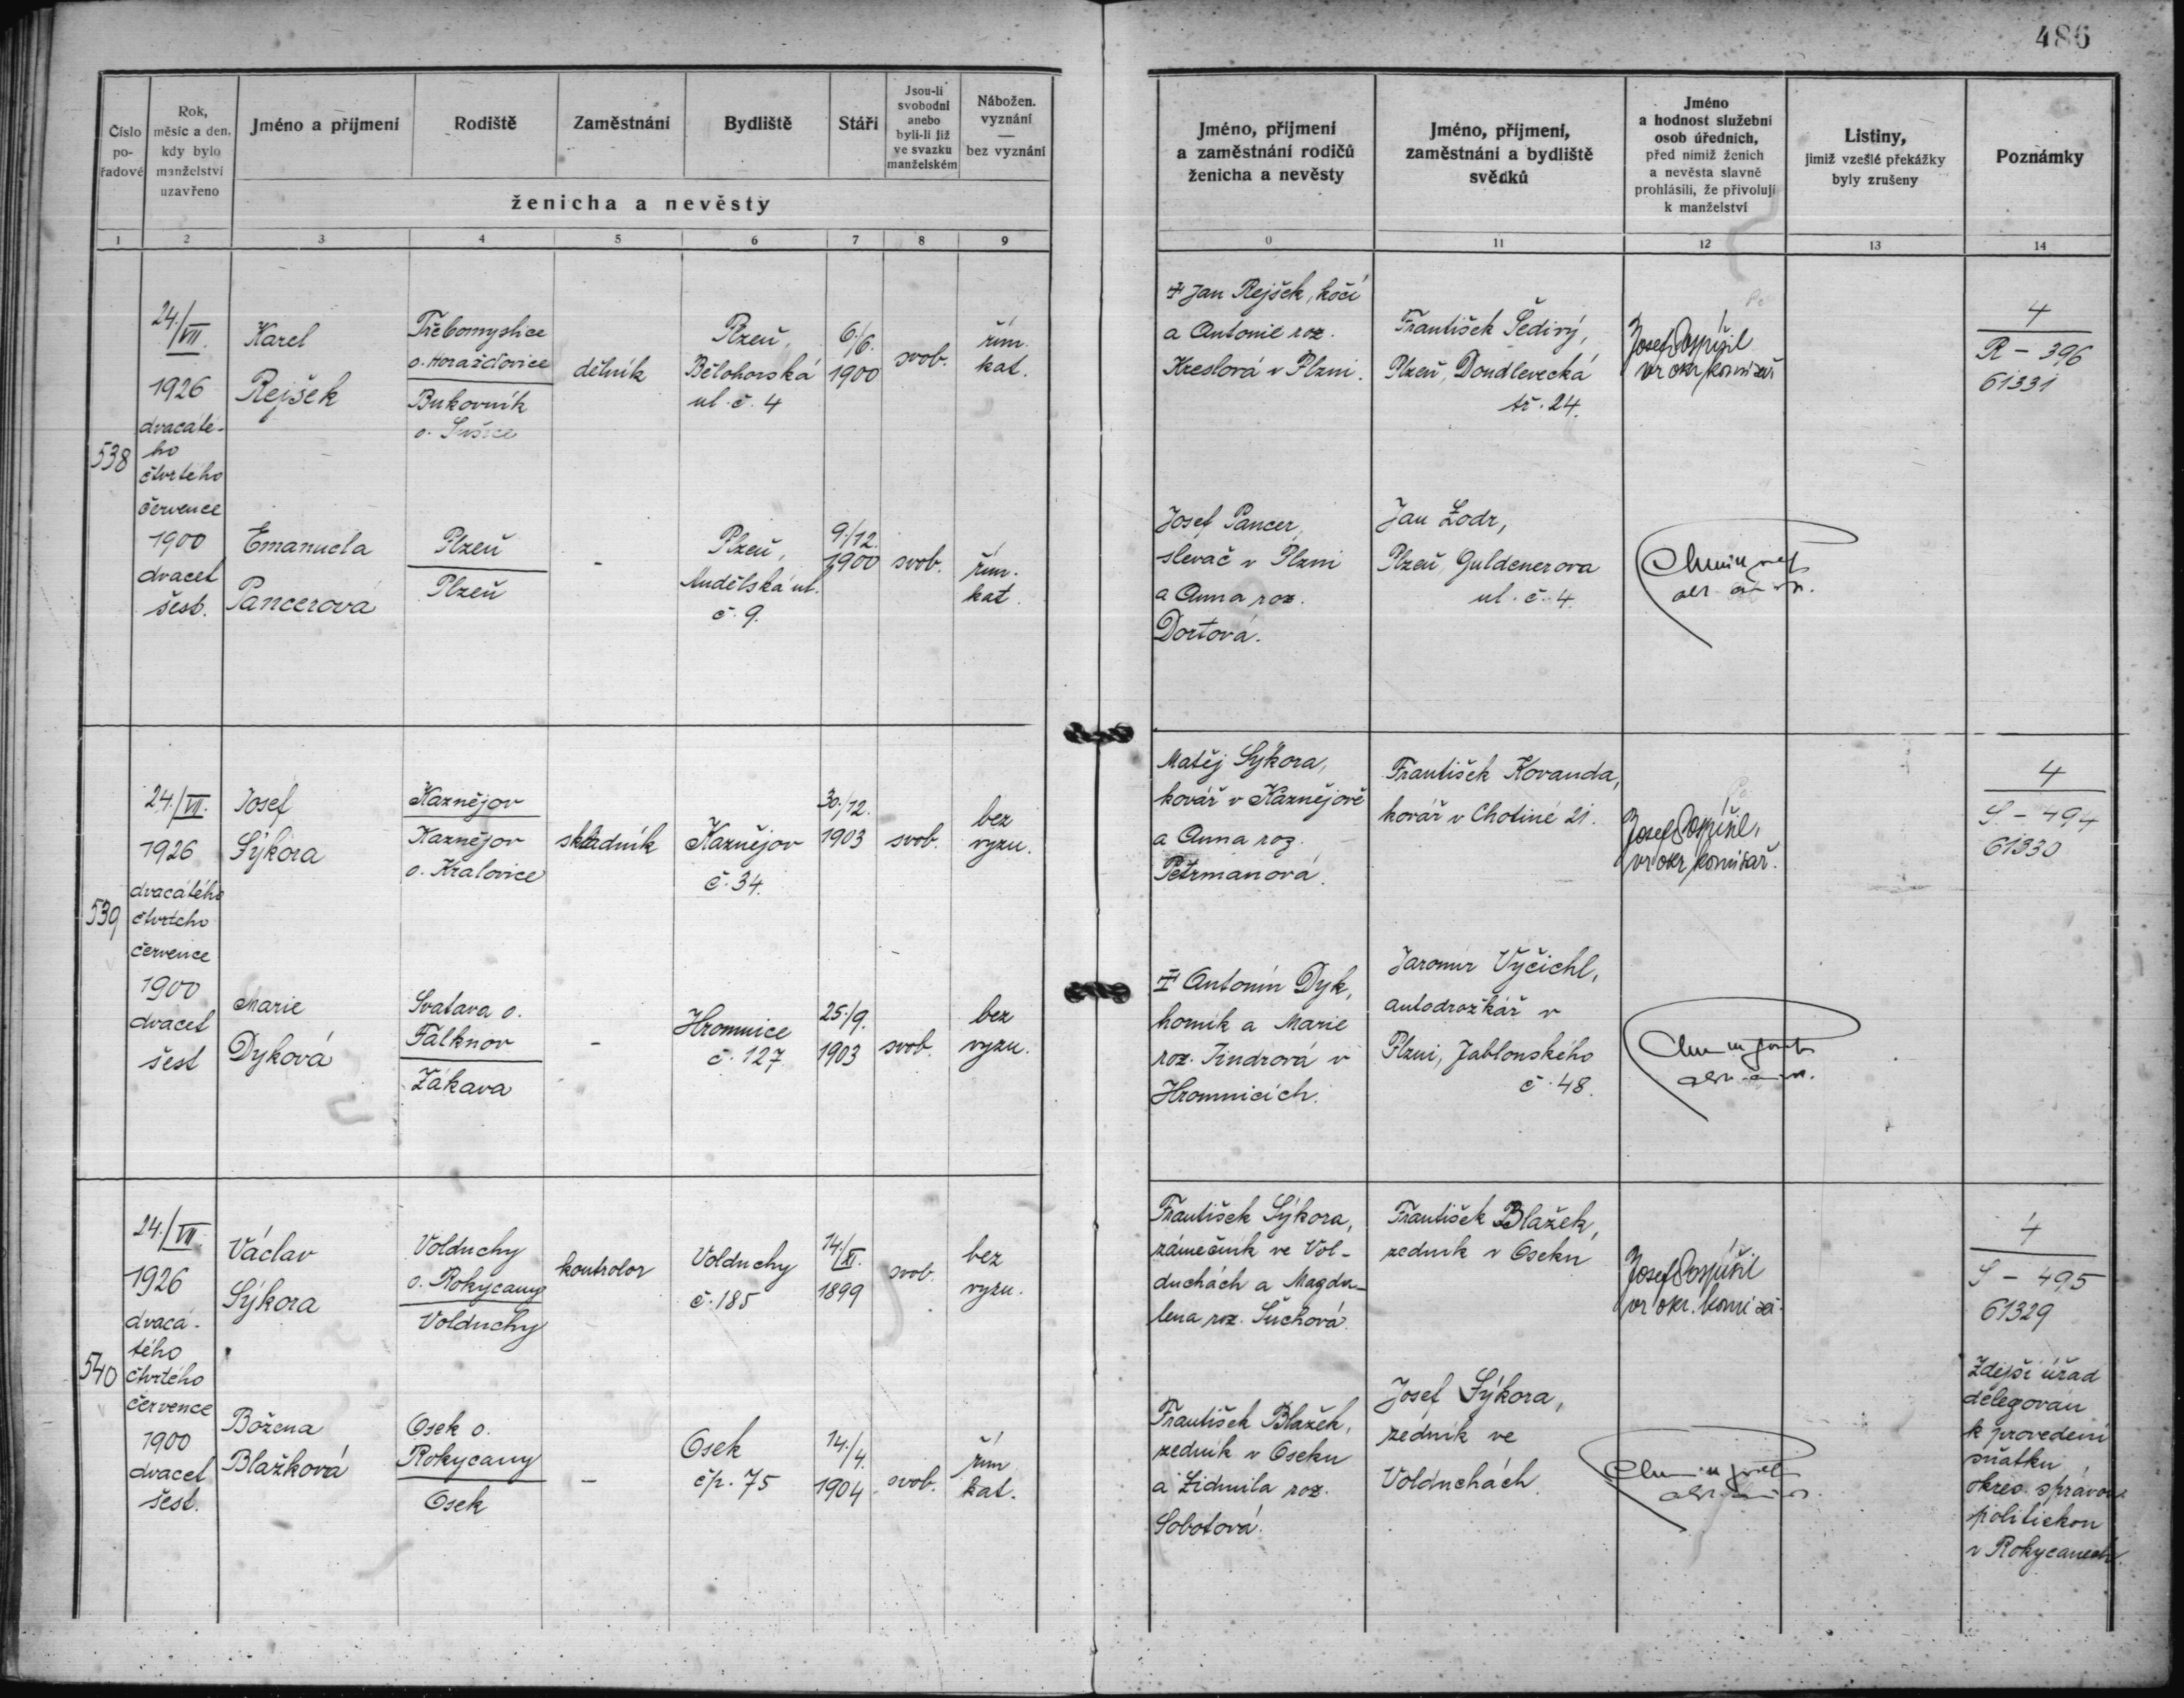 486
Číslo
po-
řadové
Rok,
měsíc a den,
kdy bylo
manželství
uzavřeno
Jméno a příjmení
Rodiště
Zaměstnání
Bydliště
Stáří
Jsou-li
svobodni
anebo
byli-li již
ve svazku
manželském
Nábožen.
vyznání
—
bez vyznání
ženicha a nevěsty
1
2
3
4
5
6
7
8
9
Jméno, příjmení
a zaměstnání rodičů
ženicha a nevěsty
Jméno, příjmení,
zaměstnání a bydliště
svědků
Jméno
a hodnost služební
osob úředních,
před nimiž ženich
a nevěsta slavně
prohlásili, že přivolují
k manželství
Listiny,
jimiž vzešlé překážky
byly zrušeny
Poznámky
0
11
12
13
14
538
24./VII.
1926
dvacáté-
ho
čtvrtého
července
1900
dvacet
šest.
Karel
Rejšek
Třebomyslice
o. Horažďovice
Bukovník
o. Sušice
dělník
Plzeň,
Bělohorská
ul. č. 4
6/6.
1900
svob.
řím.
kat.
Emanuela
Pancerová
Plzeň
Plzeň
-
Plzeň,
Andělská ul.
č. 9.
9./12.
1900
svob.
řím.
kat.
+ Jan Rejšek, kočí
a Antonie roz.
Kreslová v Plzni.
František Šedivý,
Plzeň, Doudlevecká
tř. 24.
Josef Pospíšil
vr. okr. komisař
4
R - 396
61331
Josef Pancer,
slevač v Plzni
a Anna roz.
Dortová.
Jan Lodr,
Plzeň, Guldenerova
ul. č. 4.
539
24./VII.
1926
dvacátého
čtvrtého
července
1900
dvacet
šest
Josef
Sýkora
Kaznějov
Kaznějov
o. Kralovice
skladník
Kaznějov
č. 34.
30./12.
1903
svob.
bez
vyzn.
Marie
Dyková
Svatava o.
Falknov
Žákava
-
Hromnice
č. 127
25./9.
1903
svob.
bez
vyzn.
Matěj Sýkora,
kovář v Kaznějově
a Anna roz.
Petrmanová.
František Kovanda,
kovář v Chotiné 21.
Josef Pospíšil,
vr. okr. komisař.
4
S - 494
61330
+ Antonín Dyk,
horník a Marie
roz. Jindrová v
Hromnicích.
Jaromír Vyčichl,
autodrožkář v
Plzni, Jablonského
č. 48.
540
24./VII.
1926
dvacá-
tého
čtvrtého
července
1900
dvacet
šest.
Václav
Sýkora
Volduchy
o. Rokycany
Volduchy
kontrolor
Volduchy
č. 185
14./XI.
1899
svob.
bez
vyzn.
Božena
Blažková
Osek o.
Rokycany
Osek
-
Osek
čp. 75
14./4.
1904
svob.
řím.
kat.
František Sýkora,
zámečník ve Vol-
duchách a Magda-
lena roz. Suchová.
František Blažek,
zedník v Oseku
Josef Pospíšil
vr. okr. komisař.
4
S - 495
61329
František Blažek,
zedník v Oseku
a Lidmila roz.
Sobotová.
Josef Sýkora,
zedník ve
Volduchách.
Zdejší úřad
delegován
k provedení
sňatku
okres. správou
politickou
v Rokycanech.